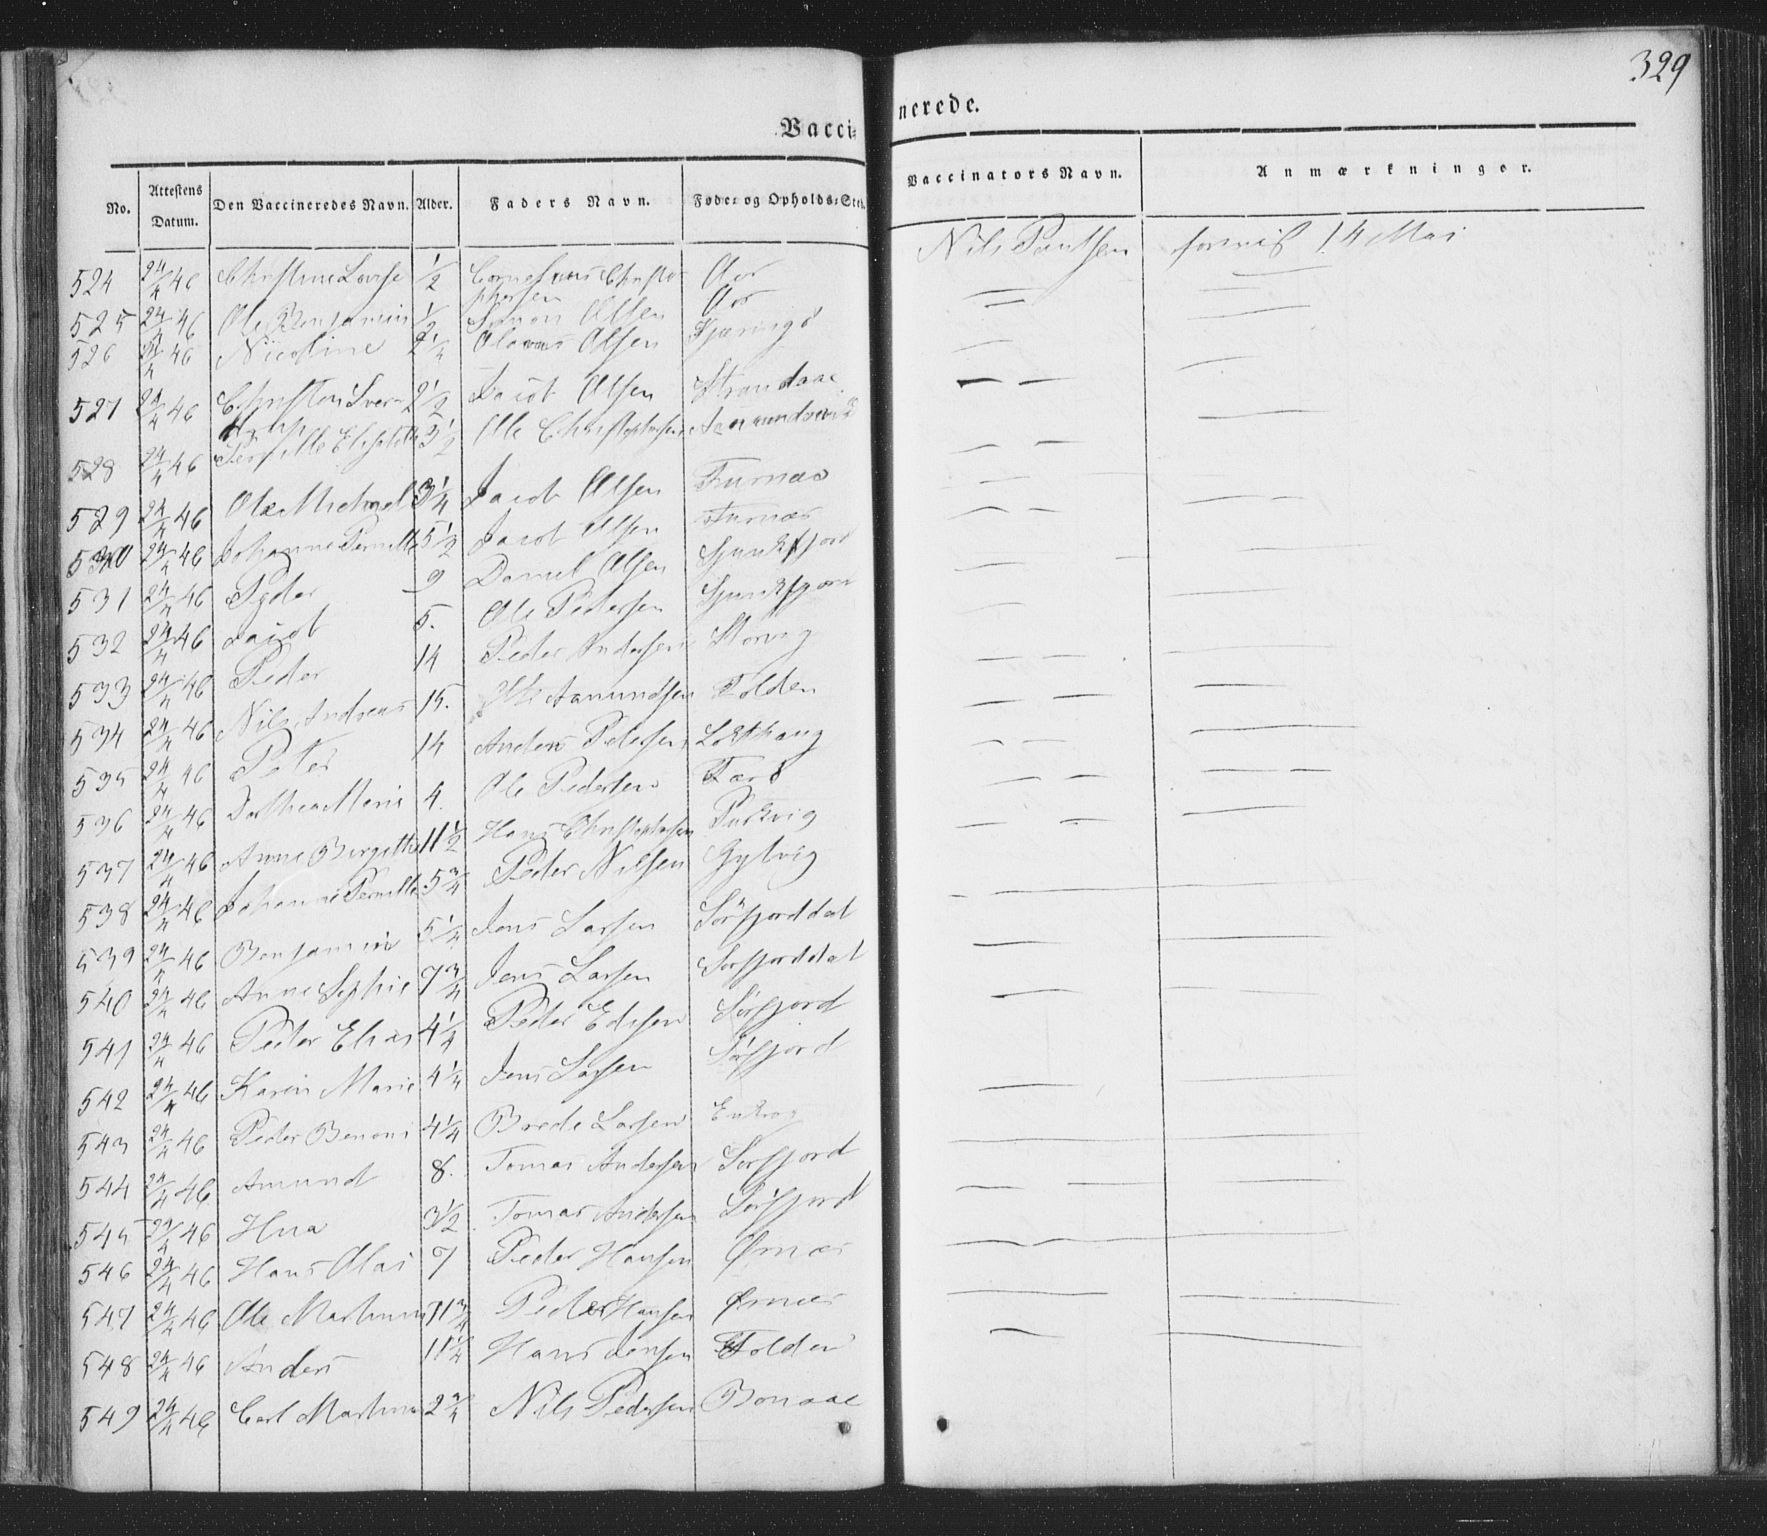 329
Vaccinerede.
No. Attestens Datum. Den Vaccineredes Navn. Alder. Faders Navn. Føde- og Opholds-Sted. Vaccinators Navn. Anmærkninger.
524 24/4 46 Christine Lovise 1/2 Cornelius Christo Nils Paulsen 14 Mai
phersen
525 24/4 46 Ole Benjamin 1/2 Simon Olsen
526 24/4 46 Nicoline 2 1/4 Olsen Kjæringø
527 24/4 46 Christen 2 1/2 Jacob Olsen Strandaae
528 24/4 46 Pernille 3 1/2 Ole Christophersen Aamundsvik
529 24/4 46 Ole Michael 3 1/4 Jacob Olsen Furnæs
530 24/4 46 Johanne Pernille 5 1/2 Jacob Olsen Furnæs
531 24/4 46 Peder 9 Daniel Olsen Sjunkfjord
532 24/4 46 Jacob 5. Ole Pedersen Sjunkfjord
533 24/4 46 Peder 14 Peder Andersen Storvig
534 24/4 46 Nils Andreas 15. Ole Aamundsen Folden
535 24/4 46 Peter 14 Anders Pedersen
536 24/4 46 Dorthea Maria 4. Ole Pedersen Færø
537 24/4 46 Anne Bergitte 11 1/2 Hans Christophersen
538 24/4 46 Johanne Pernille 5 3/4 Peder Nilsen Gylvig
539 24/4 46 Benjamin 5 1/4 Jens Larsen Sørfjorddal
540 24/4 46 Anne Sophie 7 3/4 Jens Larsen Sørfjorddal
541 24/4 46 Peder Elias 4 1/4 Peder Edisen Sørfjord
542 24/4 46 Karen Marie 4 1/4 Jens Larsen Sørfjord
543 24/4 46 Peder Benoni 4 1/4 Brede Larsen
544 24/4 46 Amund 8. Tomas Andersen Sørfjord
545 24/4 46 3 1/2 Tomas Andersen Sørfjord
546 24/4 46 Hans Olai 7 Peder Hansen Ørnæs
547 24/4 46 Ole Martinus 11 3/4 Peder Hansen Ørnæs
548 24/4 46 Anders 11 1/4 Hans Jensen Folden
549 24/4 46 Carl Martinus 2 3/4 Nils Pedersen Bonaae